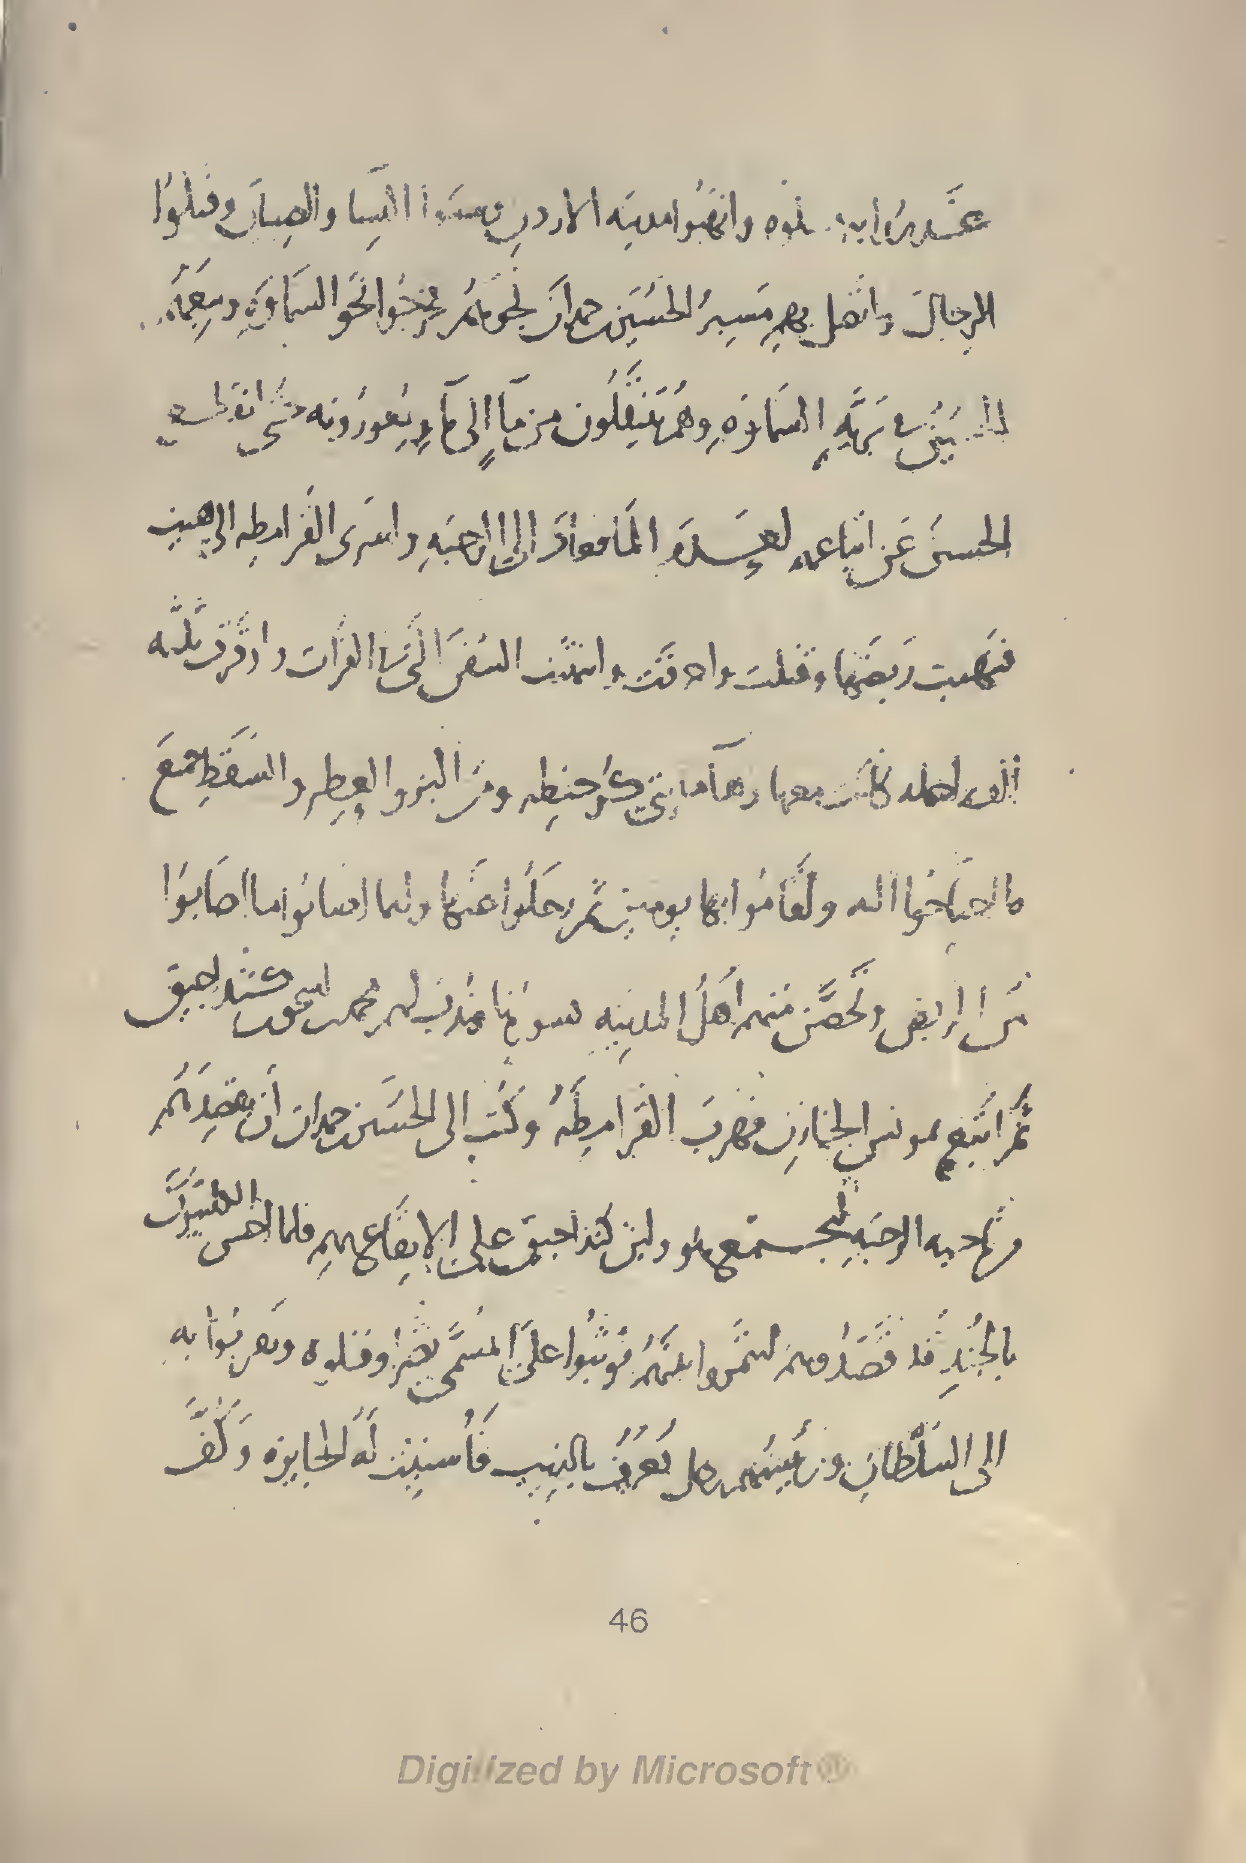 وانهبوا مدينه الاردن وسبوا النسا والصبيان وقتلوا
الرجال واتصل بهم مسير الحسين بن حمدان نحوهم فخرجوا نحو السماوه وتبعهم
الحسين في بريه السماوه وهم يتنقلون من ما الى ما ويعورونه حتى انقطع
الحسين عن اتباعهم لعدم الما فعاد الى الرحبه واسرى القرامطه الى هيت
فنهبت ربضها وقتلت واحرقت وانتهبت السفن التي في الفرات واوقرت ثلثه
الف راحله كانت معها زها مايتي كر حنطه ومن البز والعطر والسقط جميع
ما احتاجوا اليه واقاموا بها يومين ثم رحلوا عنها وانما اصابوا ما اصابوا
من الربض وتحصن منهم اهل المدينه بسورها فندب لهم محمد بن اسحق بن كنداجيق
ثم اتبع بمونس الخازن فهرب القرامطه وكتب الى الحسين بن حمدان ان يقصدهم
من جهه الرحبه ليجتمع هو وابن كنداجيق على الايقاع بهم فلما احس الكلبيون
بالجند قد قصدوهم ايتمروا بينهم فوثبوا على المسمى نصرا وقتلوه وتقربوا به
الى السلطان وزعيمهم رجل يعرف بالذيب فاسنيت له الجايزه وكف

46
Digitized by Microsoft®